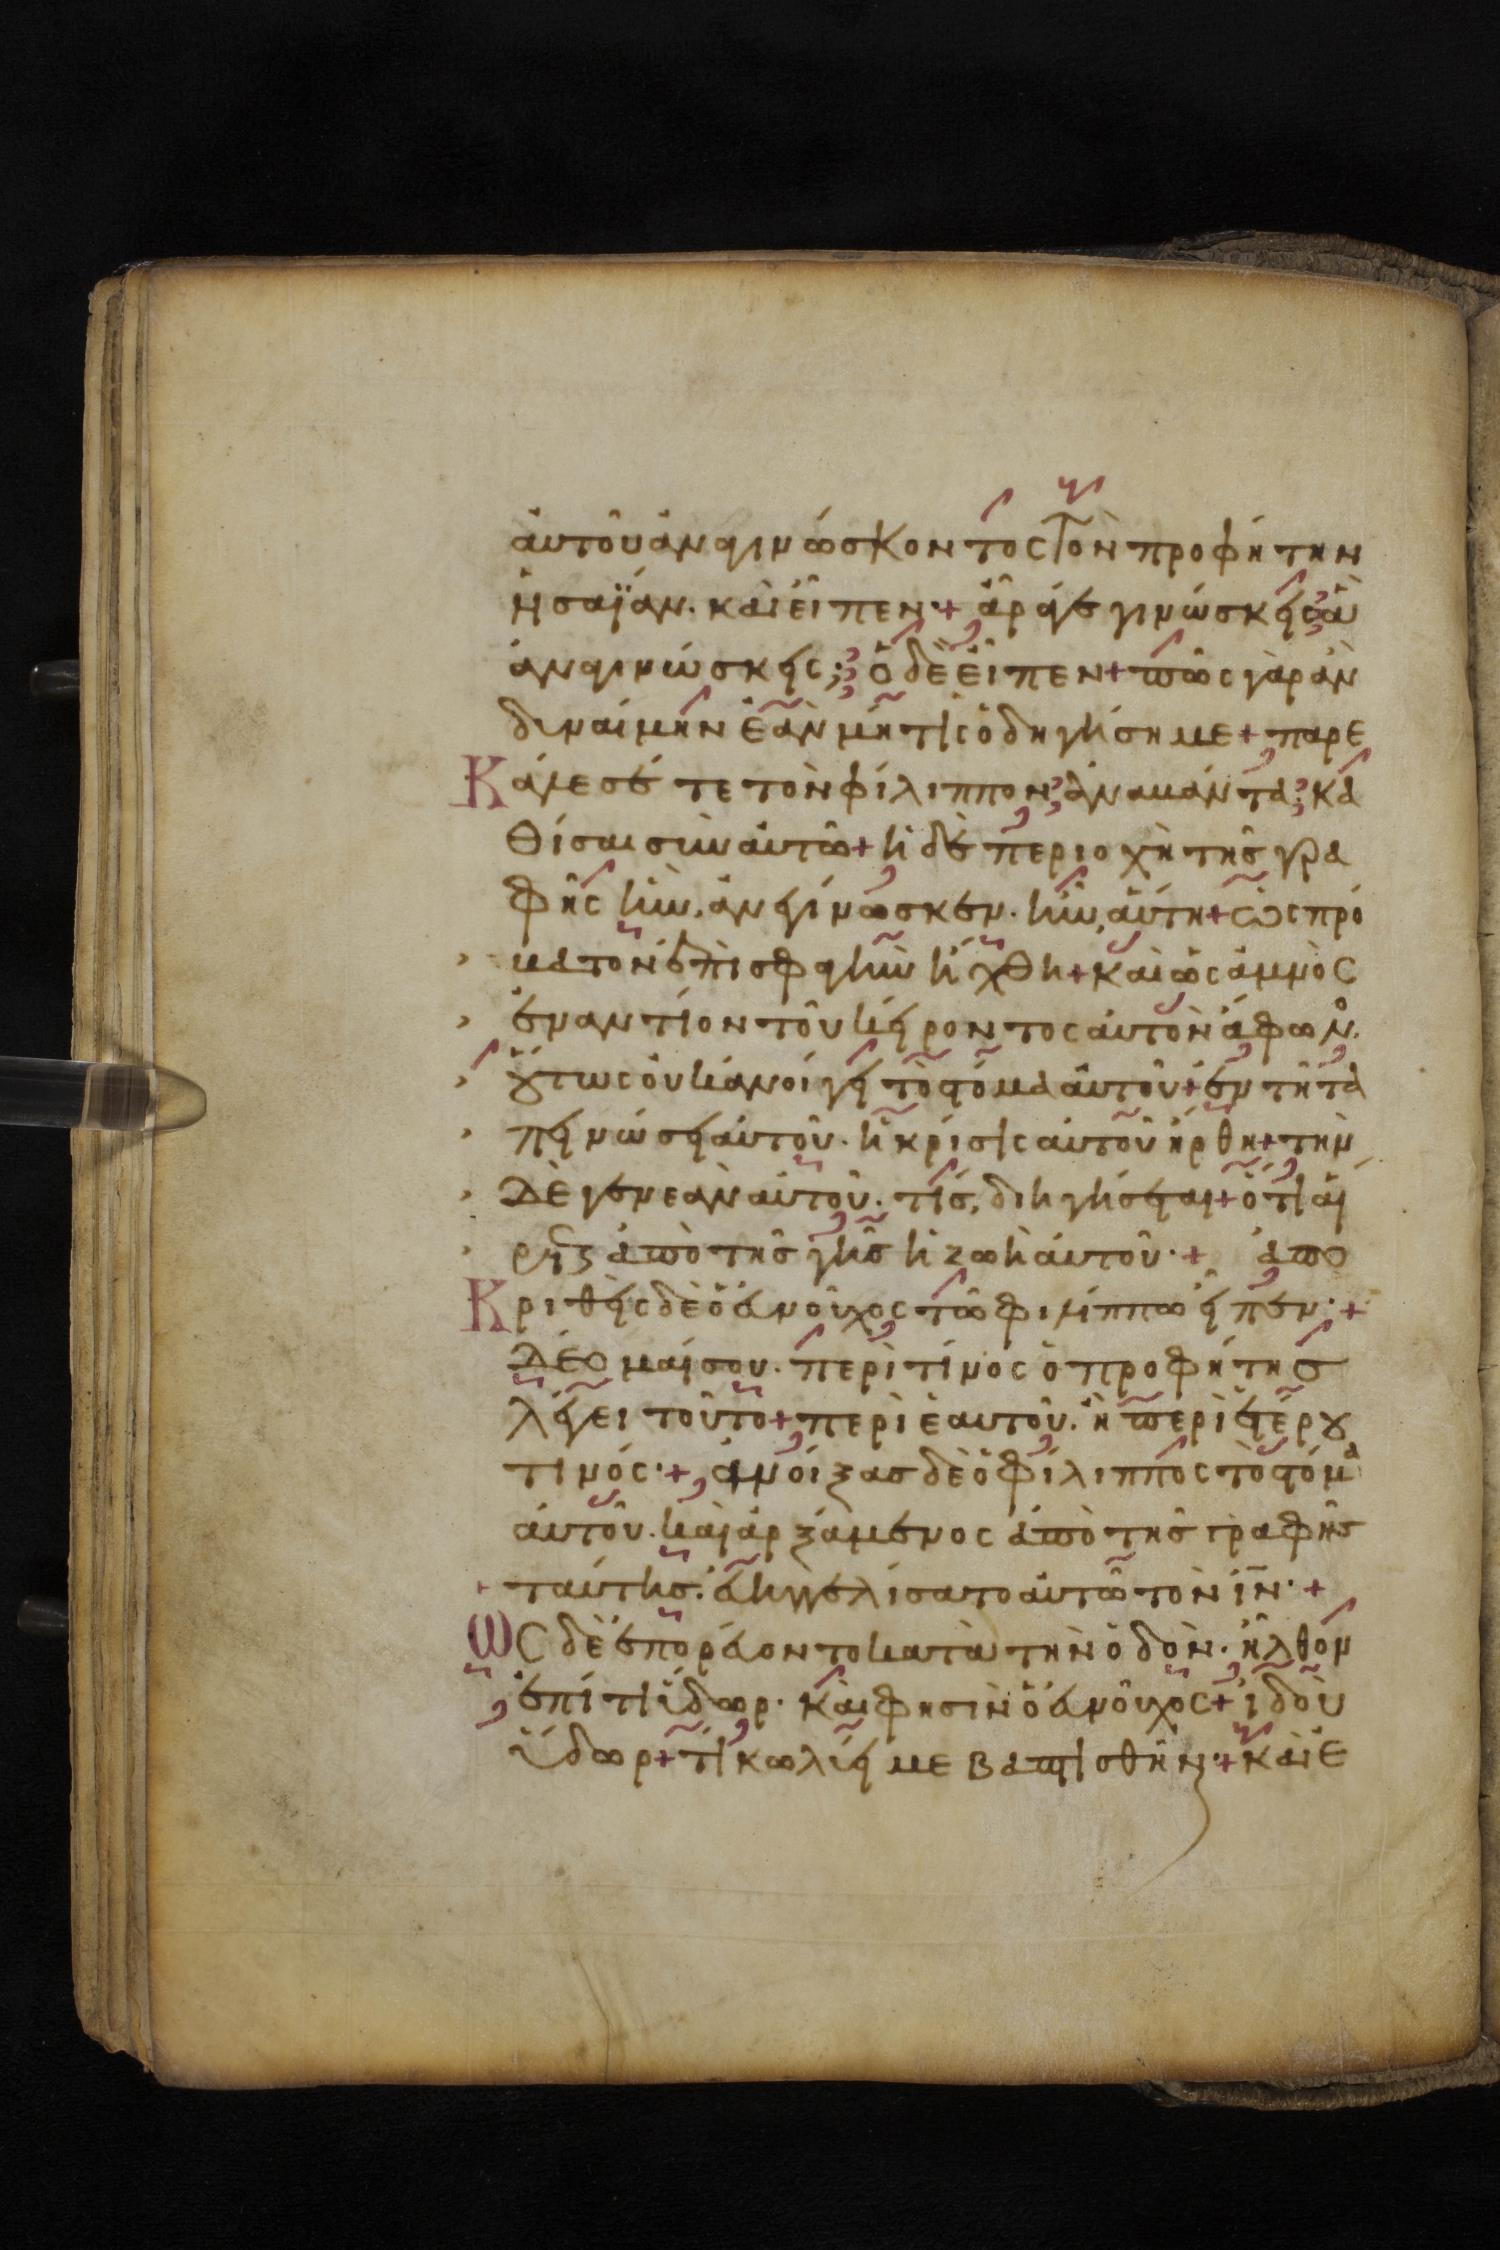 αὐτοῦ ἀναγινώσκοντος τὸν προφήτην
ἡσαΐαν. καὶ εἶπεν·+ ἆρά γε γινώσκεις ἃ
ἀναγινώσκεις; ὁ δὲ εἶπεν + πῶς γὰρ ἂν
δυναίμην ἐὰν μή τις ὁδηγήση με + παρε
Κάλεσέ τε τὸν φίλιππον ἀναβάντα κα
θίσαι σὺν αὐτῶ + ἡ δὲ περιοχὴ τῆς γρα
φῆς ἣν ἀνεγίνωσκεν. ἦν αὕτη + ὡς πρό
βατον ἐπὶ σφαγὴν ἤχθη + καὶ ὡς ἀμνὸς
ἐναντίον τοῦ κείροντος αὐτὸν ἄφωνο.
οὕτως οὐκ ἀνοίγει τὸ στόμα αὐτοῦ + ἐν τῆ τα
πεινώσει αὐτοῦ. ἡ κρίσις αὐτοῦ ἤρθη + τὴν
δὲ γενεὰν αὐτοῦ. τίς διηγήσεται + ὅτι αἴ
ρεται ἀπὸ τῆς γῆς ἡ ζωὴ αὐτοῦ·+ ἀπο
Κριθεὶς δὲ ὁ εὐνοῦχος τῶ φιλίππω εἶπεν·+
δέομαί σου. περὶ τίνος ὁ προφήτης
λέγει τοῦτο + περὶ ἑαυτοῦ. ἢ περὶ ἑτέρου
τινός·+ ἀνοίξας δὲ ὁ φίλιππος τὸ στόμα
αὐτοῦ. καὶ ἀρξάμενος ἀπὸ τῆς γραφῆς
+ ταύτης. εὐηγγελίσατο αὐτῶ τὸν ιν·+
ωΣ δὲ ἐπορεύοντο κατὰ τὴν ὁδὸν. ἦλθον
ἐπί τι ὕδωρ. καὶ φησὶν ὁ εὐνοῦχος + ἰδοὺ
ὕδωρ + τί κωλύει με βαπτισθῆν·+ καὶ ἐ